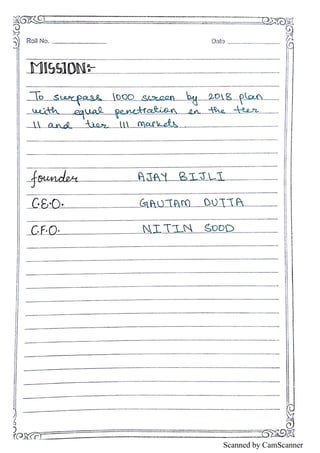 Roll No. Date
MISSION:-
To surpass 1000 screen by 2018 plan
with equal penetration en the teer
II and tier III markets.
founder AJAY BIJLI
C.E.O. GAUTAM DUTTA
C.F.O. NITIN SOOD
Scanned by CamScanner